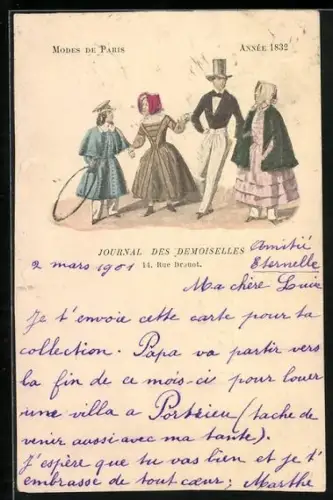 MODES DE PARIS
ANNÉE 1832
JOURNAL DES DEMOISELLES
14, Rue Drouot.
Amitié
Eternelle
2 mars 1901
Ma chère
Je t'envoie cette carte pour ta
collection. Papa va partir vers
la fin de ce mois-ci pour louer
une villa a Portrieu (tache de
venir aussi avec ma tante).
J'espère que tu vas bien et je t'
embrasse de tout cœur; Marthe